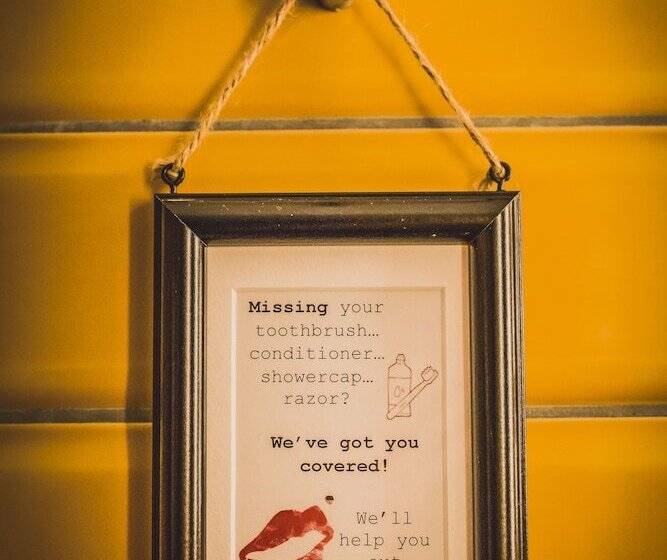 Missing your
toothbrush…
conditioner…
showercap…
razor?
We've got you
covered!
We'll
help you